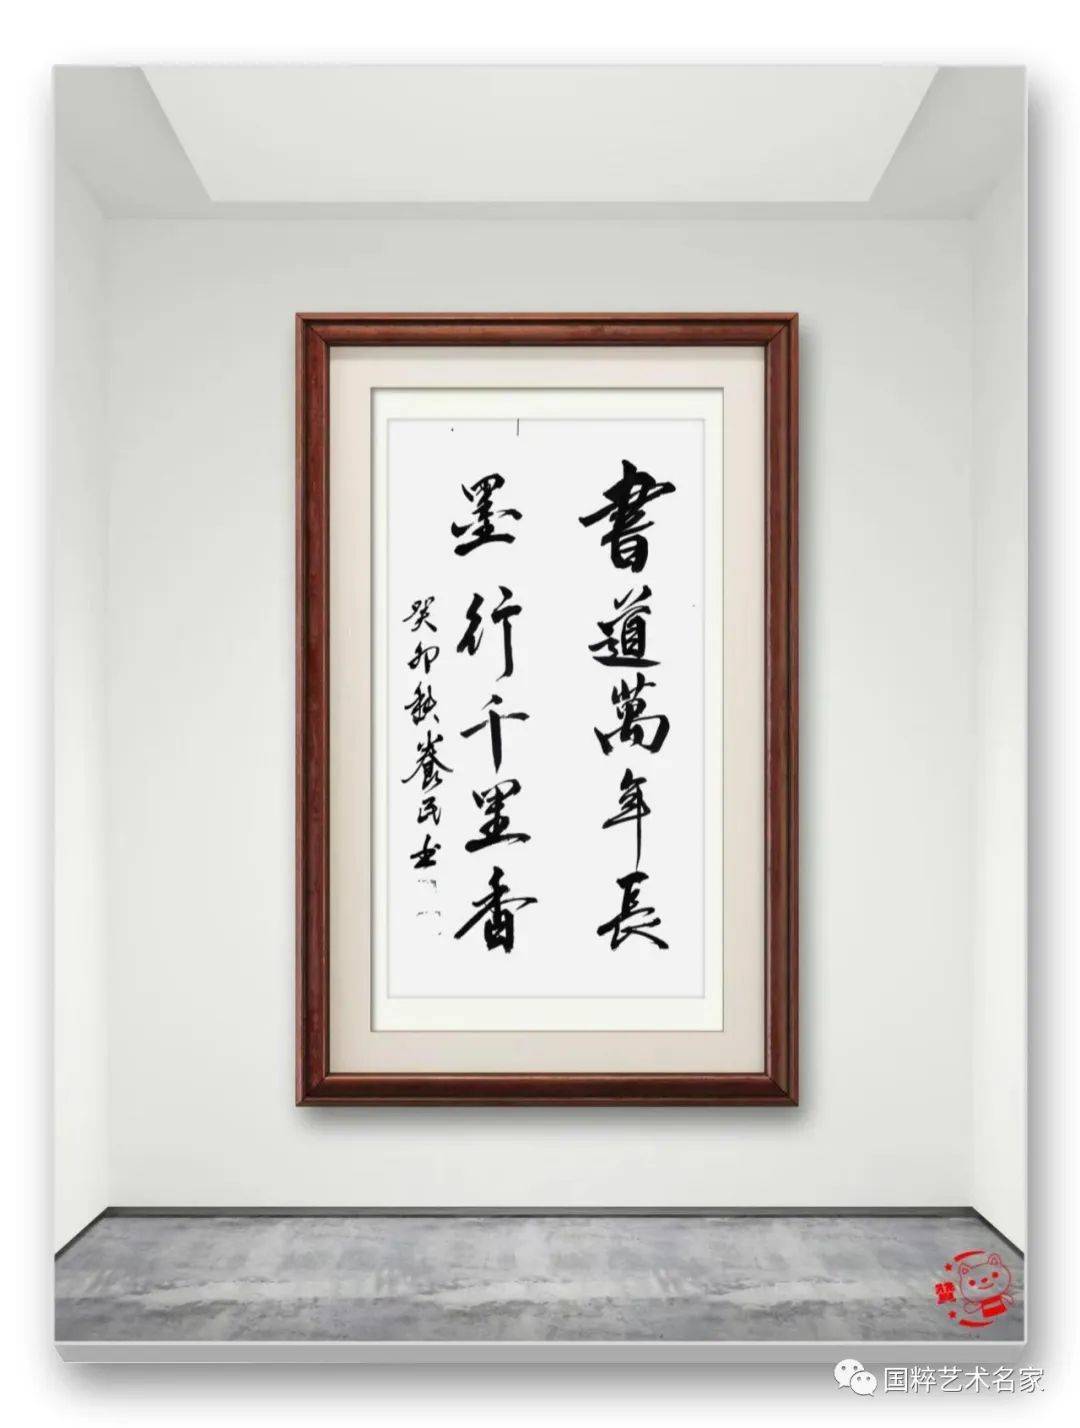 書道萬年長
墨行千里香
癸卯秋養民书
国粹艺术名家